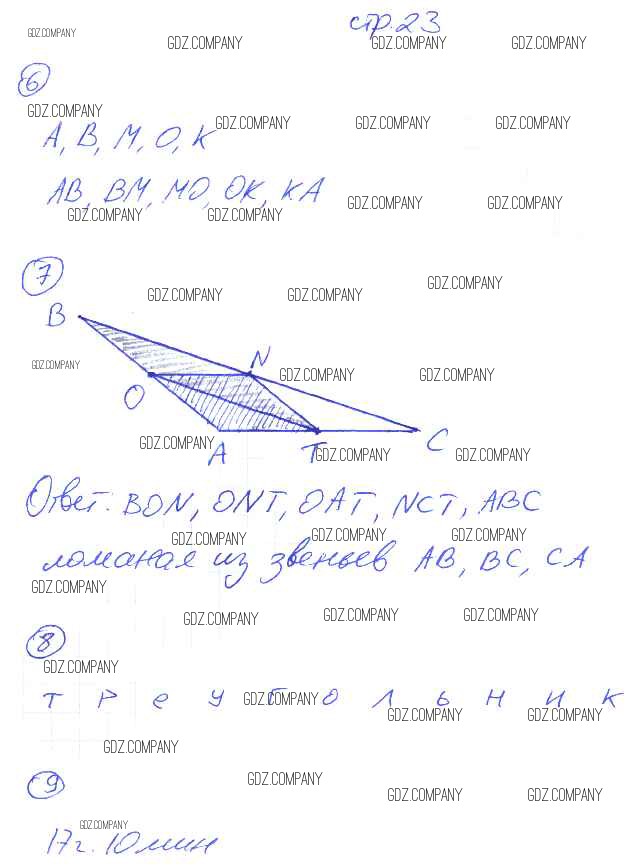 стр. 23
GDZ.COMPANY
GDZ.COMPANY GDZ.COMPANY GDZ.COMPANY
6
GDZ.COMPANY
GDZ.COMPANY GDZ.COMPANY GDZ.COMPANY
А, В, М, О, К
АВ, ВМ, МО, ОК, КА
GDZ.COMPANY GDZ.COMPANY
GDZ.COMPANY GDZ.COMPANY
7
GDZ.COMPANY
GDZ.COMPANY GDZ.COMPANY
B
N
GDZ.COMPANY
GDZ.COMPANY GDZ.COMPANY
O
GDZ.COMPANY
A T C
GDZ.COMPANY GDZ.COMPANY
Ответ: BON, ONT, OAT, NCT, ABC
GDZ.COMPANY GDZ.COMPANY GDZ.COMPANY
ломаная из звеньев AB, BC, CA
GDZ.COMPANY
GDZ.COMPANY GDZ.COMPANY GDZ.COMPANY
8
GDZ.COMPANY
т р е у г о л ь н и к
GDZ.COMPANY
GDZ.COMPANY GDZ.COMPANY
GDZ.COMPANY
9
GDZ.COMPANY
GDZ.COMPANY GDZ.COMPANY
GDZ.COMPANY
17г. 10 мин